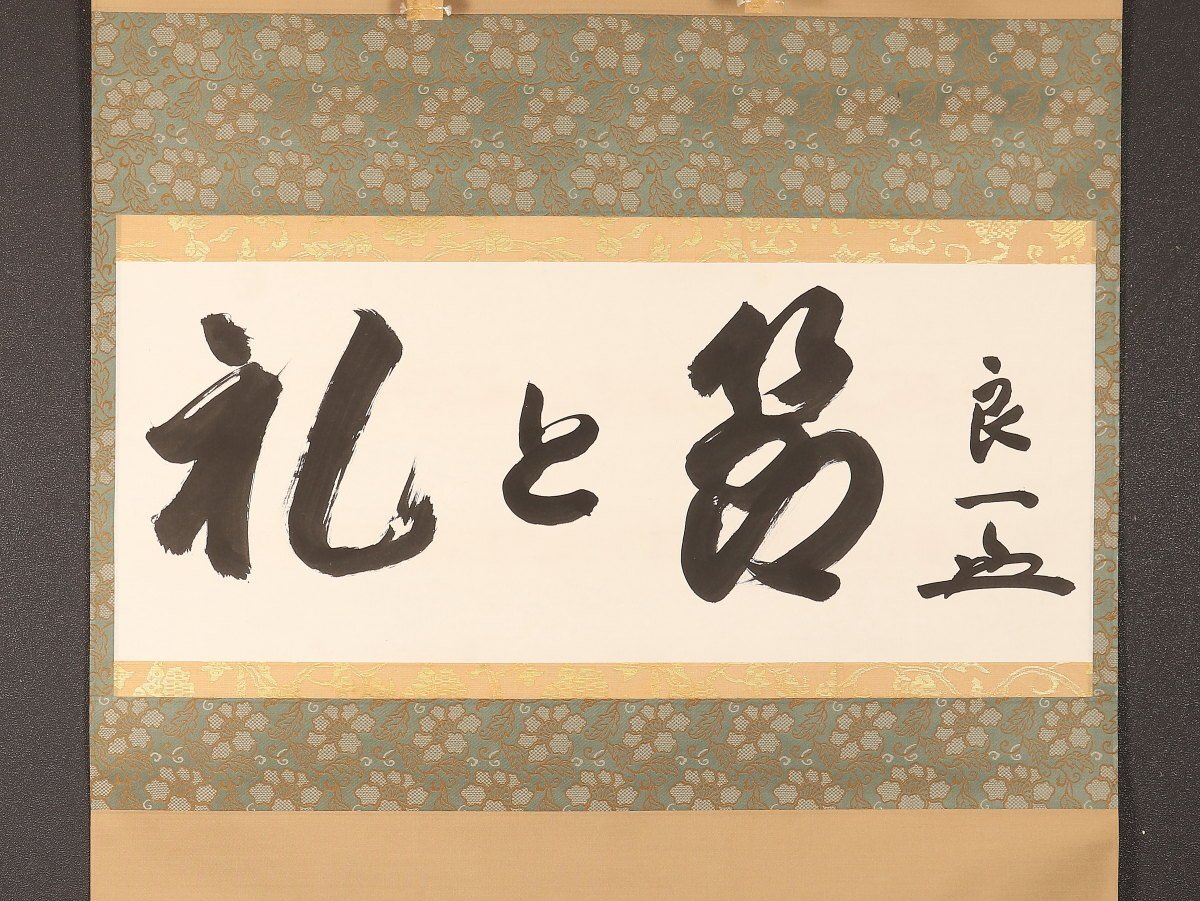 礼と節
良一